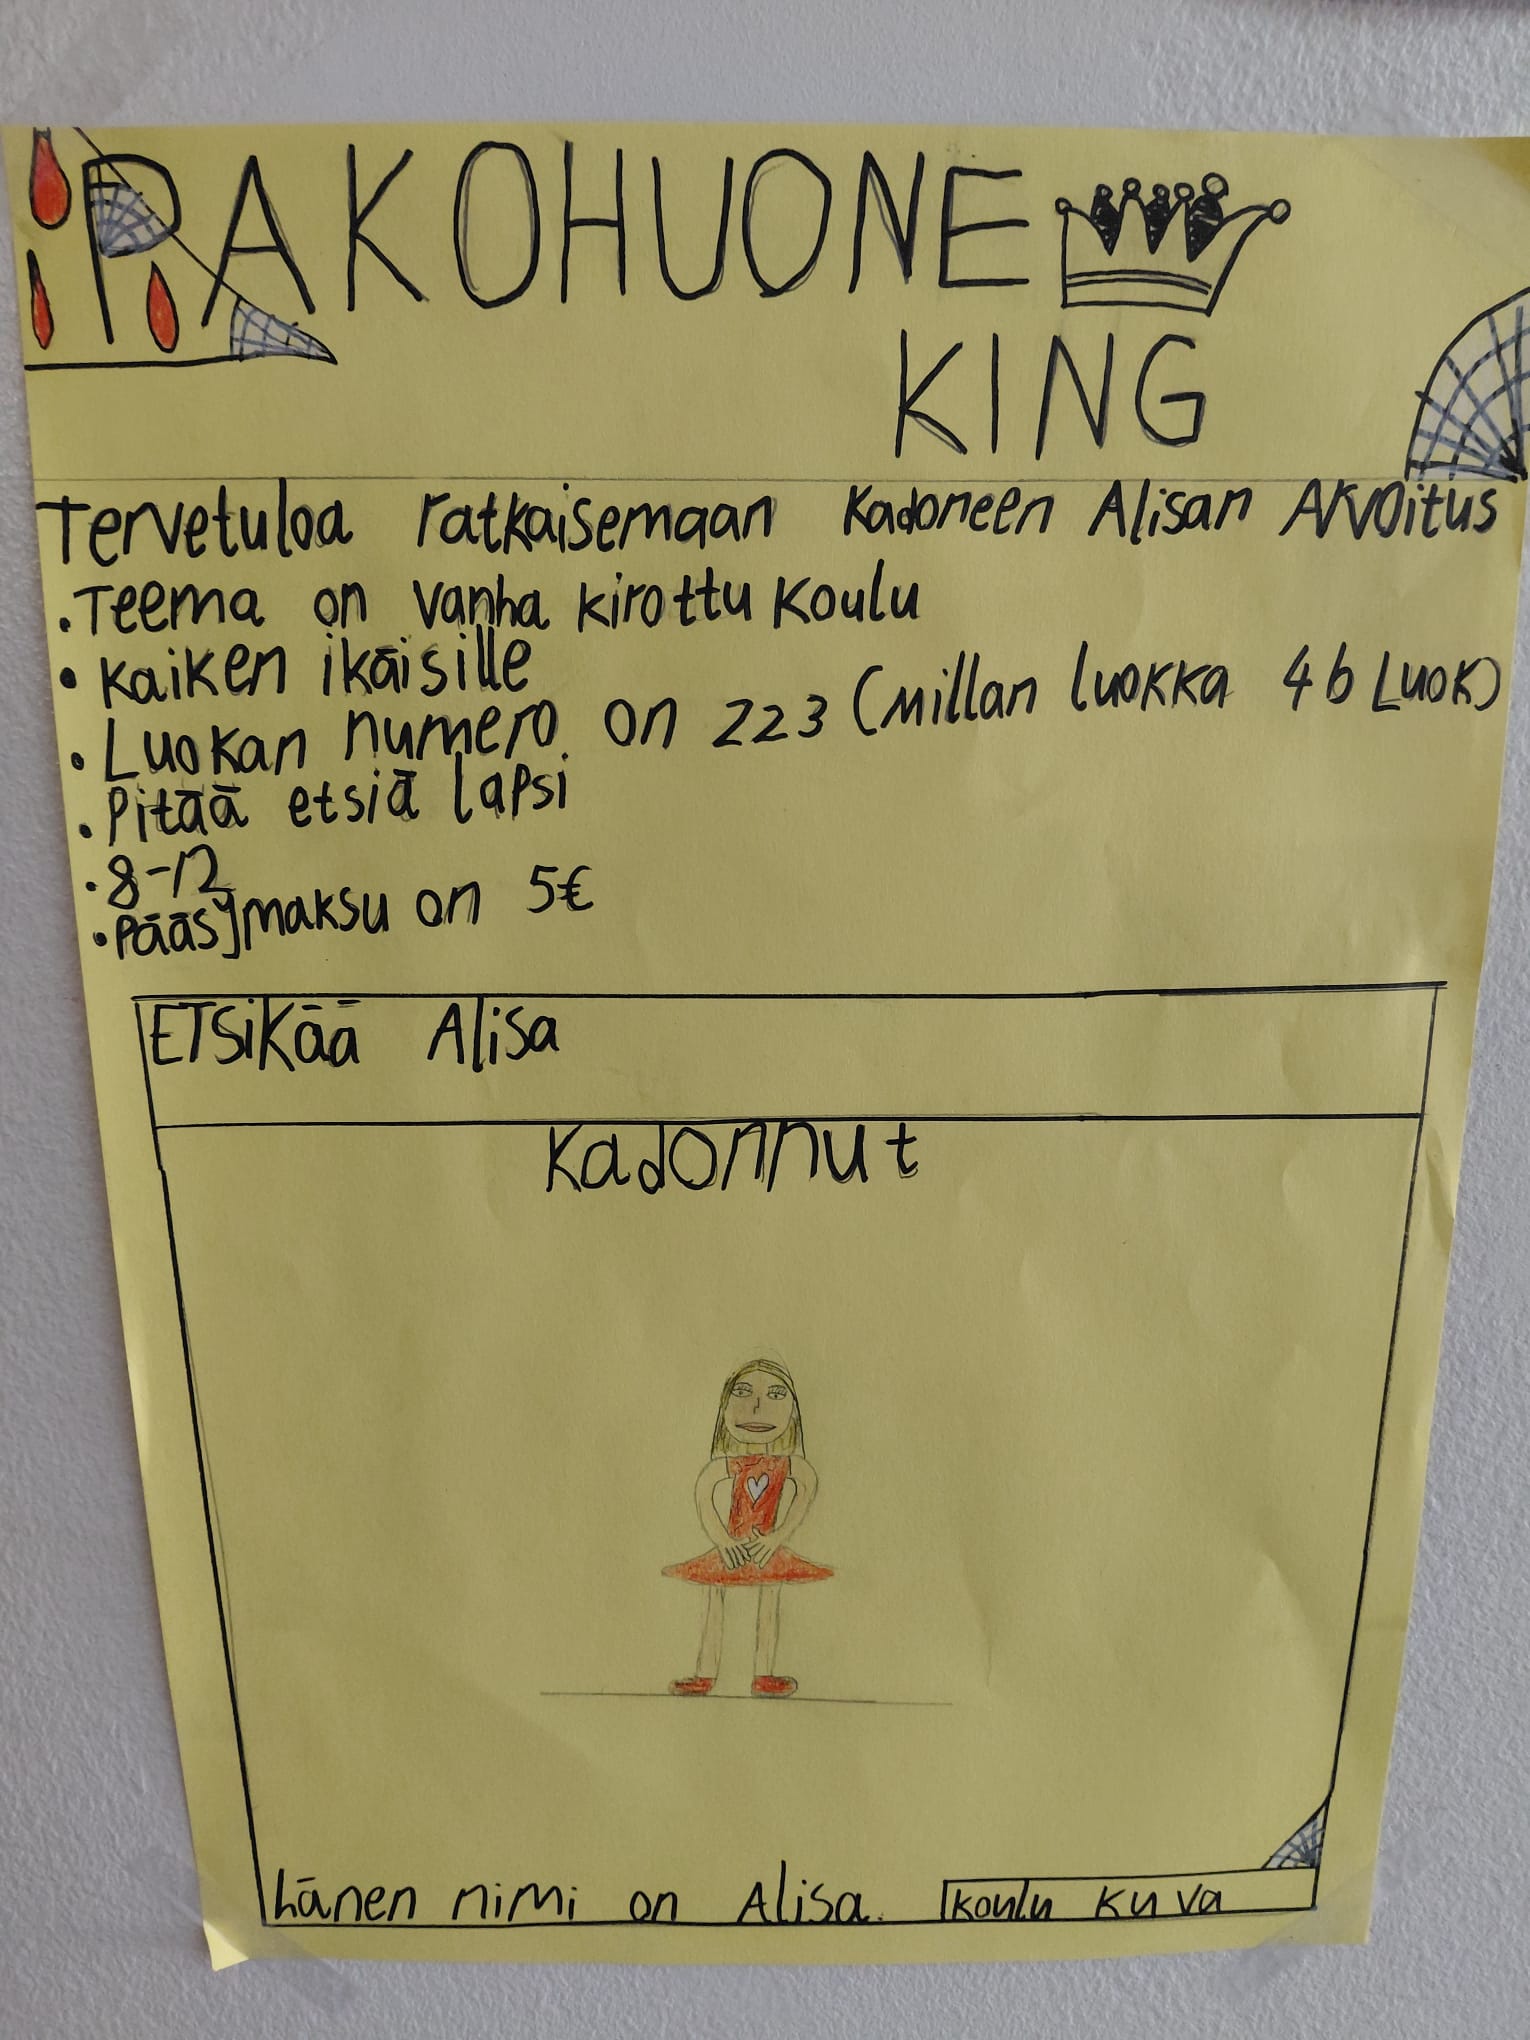 PAKOHUONE
KING
Tervetuloa ratkaisemaan Kadoneen Alisan Arvoitus
• Teema on vanha kirottu koulu
• Kaiken ikäisille
• Luokan numero on 223 (Millan luokka 4b Luok)
• Pitää etsiä lapsi
• 8-12
• Pääsymaksu on 5€
ETSiKää Alisa
Kadonnut
hänen nimi on Alisa.
koulu kuva